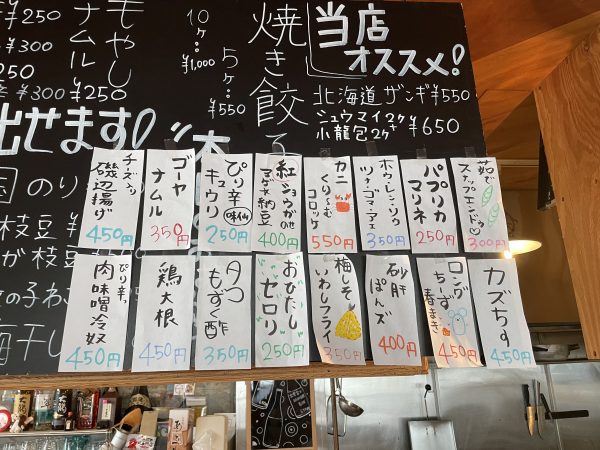 当店
オススメ!
北海道ザンギ¥550
シュウマイ2ケ
小龍包2ケ
¥650
焼き餃
10ヶ…
¥1,000
5ヶ…
¥550
もやし
ナムル
¥250
¥300
¥250
¥300
¥250
出せます!
のり
枝豆
枝豆
の子
梅干し
茹で
スナップエンドウ
300円
パプリカ
マリネ
250円
ホウレンソウ
ツナゴマアエ
350円
カニ
くりーむ
コロッケ
550円
紅ショウガの
マヨネーズ納豆
400円
ぴり辛
味仙
キュウリ
250円
ゴーヤ
ナムル
350円
チーズ入り
磯辺揚げ
450円
カズちす
450円
ロング
ちーず
春まき
450円
砂肝
ぽんズ
400円
梅しそ
いわしフライ
350円
おひたし
セロリ
250円
タコ
もずく酢
350円
鶏大根
450円
ぴり辛
肉味噌冷奴
450円